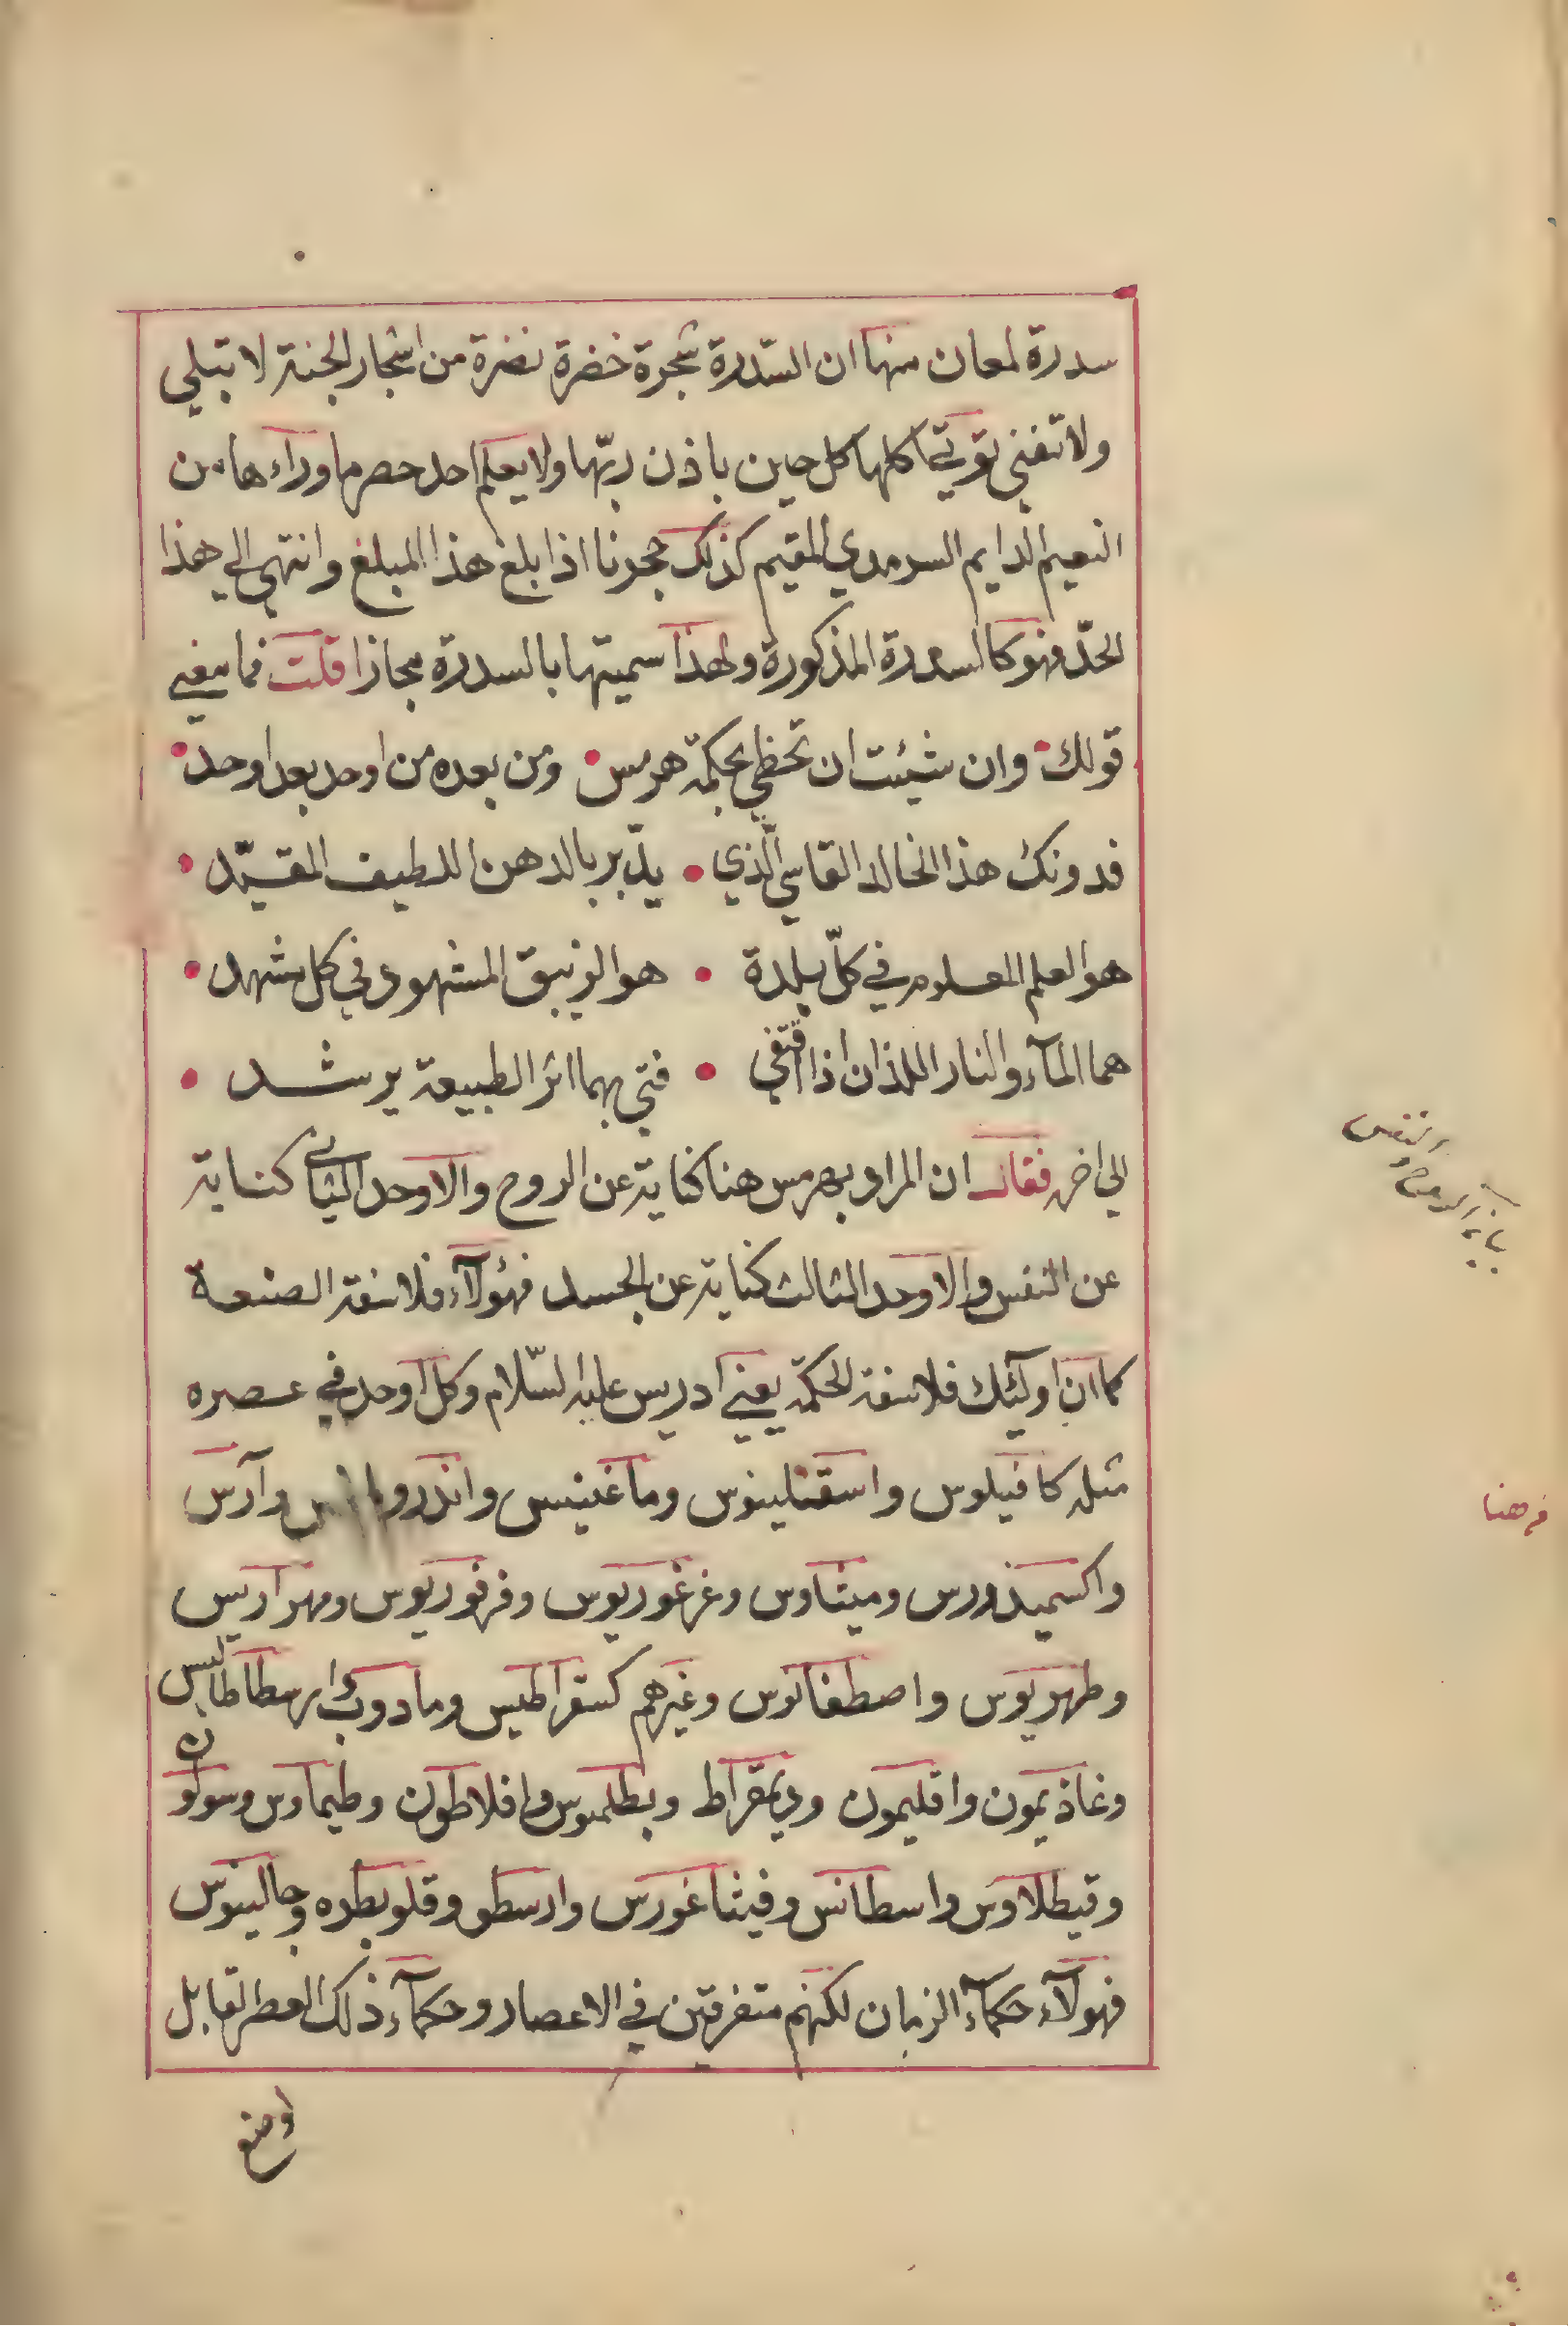 سدرة لمعان منها ان السّدرة شجرة خضرة نضرة من اشجار الجنة لا تبلي
ولا تفني تؤتي اكلها كل حين باذن ربّها ولا يعلم احد حصر ما وراءها من
النعيم الدايم السرمدي المقيم كذلك حجرنا اذا بلغ هذا المبلغ وانتهي الي هذا
الحدّ فهو كالسدرة المذكورة ولهذا سميتها بالسدرة مجازا قلت فما معني
قولك • وان شيئت ان تحظي بحكمة هرمس • ومن بعده من اوحد بعد اوحد •
فدونك هذا الخالد القاسي الّذي • يدّبر بالدهن اللطيف المقيّد •
هو العلم المعلوم في كلّ بلدة • هو الزيبق المشهود في كل مشهد •
هما المآء والنار اللذان اذا اقتفي • فتي بهما اثر الطبيعة يرشد •
الي اخره فقال ان المراد بهرمس هنا كناية عن الروح والاوحد الثاني كناية
عن النفس والاوحد الثالث كناية عن الجسد فهؤلآء فلاسفة الصنعة
كما ان اوليئك فلاسفة الحكمة يعني ادريس عليه السّلام وكل اوحد في عصره
مثله كافيلوس واسقنالينوس وماغنيس وآرس
واكسميذورس وميثاوس وغرغوريوس وفرفوريوس ومهراريس
وطهريوس واصطفانوس وغيرهم كسقراطيس ومادوب وارسطاطاليس
وغاذيمون واقليمون وديمقراط وبطلميوس وافلاطون وطيماوس وسولون
وقيطلاوس واسطانس وفيثاغورس وارسطو وقلوبطره وجالينوس
فهولآء حكمآء الزمان لكنهم متفرقين في الاعصار وحكمآء ذلك العصر القابل
والنفس
من هنا